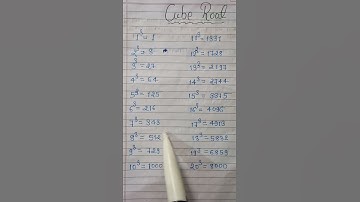 Cube Root
1³ = 1
2³ = 8
3³ = 27
4³ = 64
5³ = 125
6³ = 216
7³ = 343
8³ = 512
9³ = 729
10³ = 1000
11³ = 1331
12³ = 1728
13³ = 2197
14³ = 2744
15³ = 3375
16³ = 4096
17³ = 4913
18³ = 5832
19³ = 6859
20³ = 8000